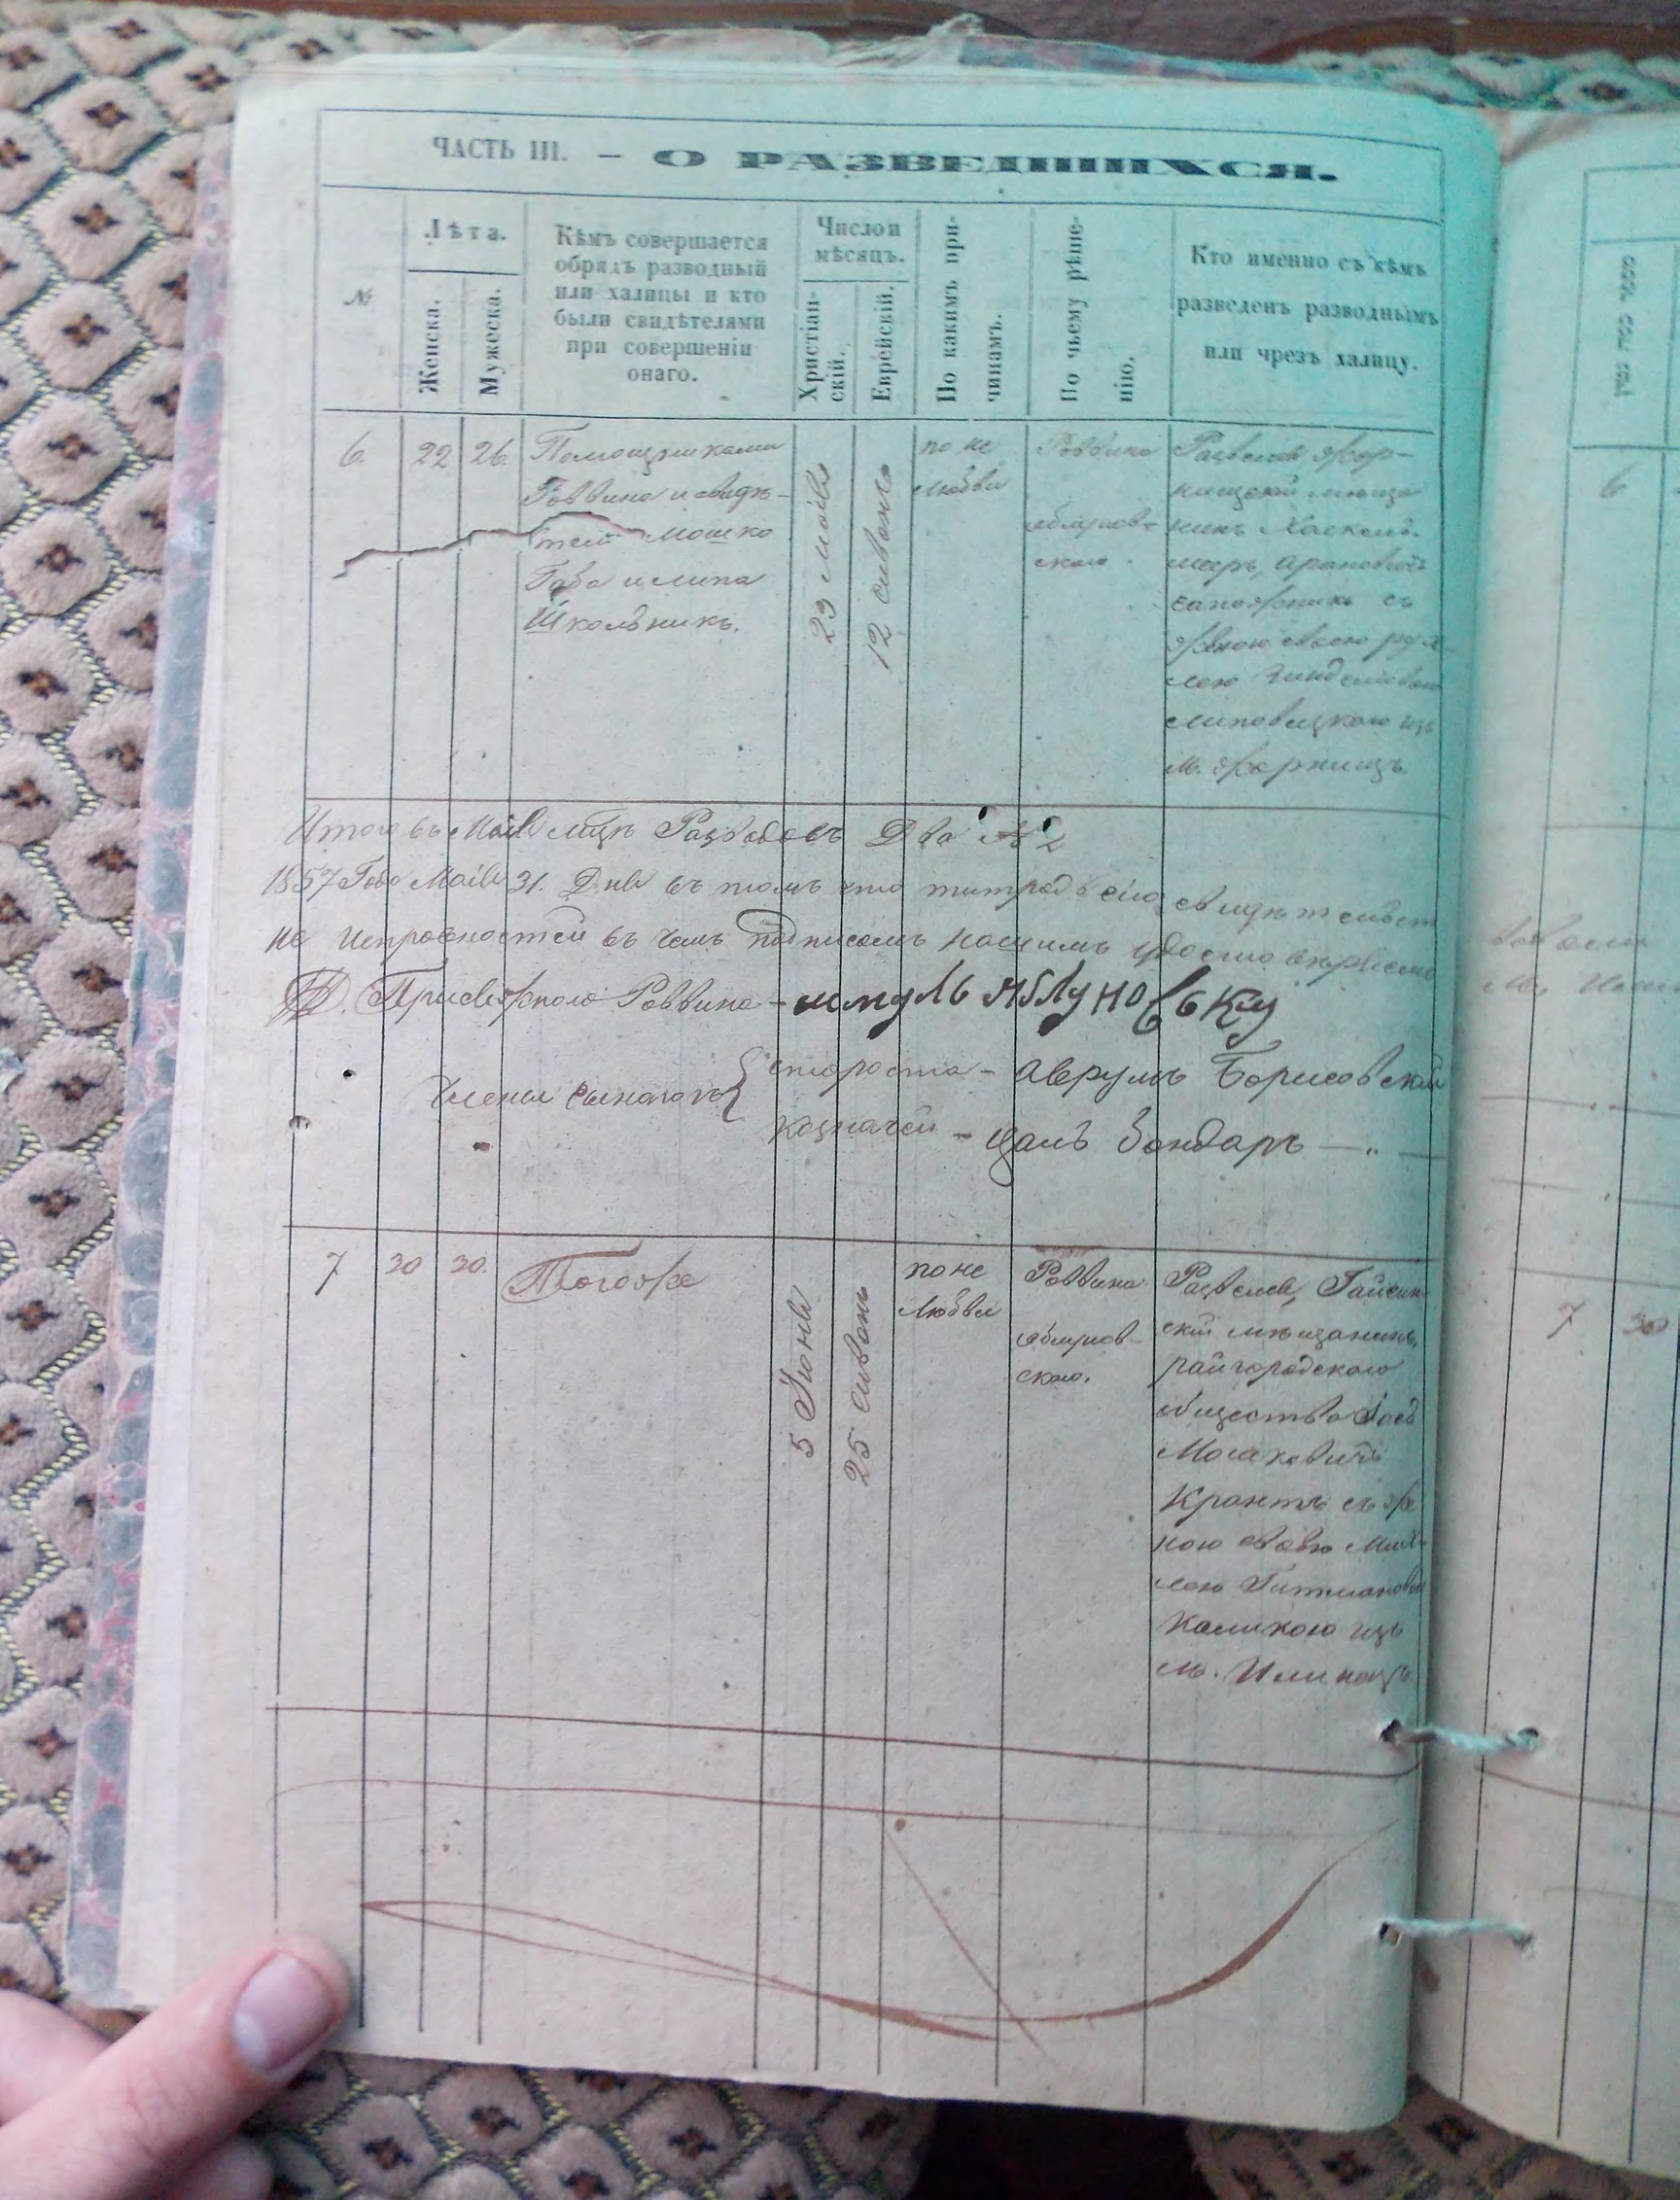 ЧАСТЬ III. — О РАЗВЕДШИХСЯ.
№
Лѣта.
Женска.
Мужеска.
Кѣмъ совершается
обрядъ разводный
или халицы и кто
были свидѣтелями
при совершеніи
онаго.
Число и
мѣсяцъ.
Христіан-
скій.
Еврейскій.
По какимъ при-
чинамъ.
По чьему рѣше-
нію.
Кто именно съ кѣмъ
разведенъ разводнымъ
или чрезъ халицу.
6.
22
26.
Помощниками
Раввина и свидѣ-
тели Мошко
Габа и Липа
Школьникъ.
29 Маія
12 сивонъ
по не
любви
Раввина
Развелся Жор-
нищскій мѣща
нинъ Хаскель
Шаръ, Ароновичъ
сапожникъ съ
женою своею рух-
лею
Липовецкаго изъ
м. Жорнищъ
Итого въ Маія мцѣ Разводовъ Два № 2
1857 Года Маія 31. Дня въ томъ что тетрадь сія
не исправностей въ чемъ подписомъ нашимъ удостовѣряемъ
Присяжнаго Раввина - шмуль яблуновску
Члены сынагоги
староста - аврумъ Борисовскій
Казначей - Бондаръ
7
30
30.
Тогоже
5 Іюня
25 сивонъ
по не
любви
Раввина
ского.
Развелся, Гайсин-
скій мѣщанинъ,
райгородскаго
общества
Мошковичъ
Крантъ съ же
ною своею Мих-
лею Гитмановой
Каликою изъ
м. Илинецъ
6
7
30